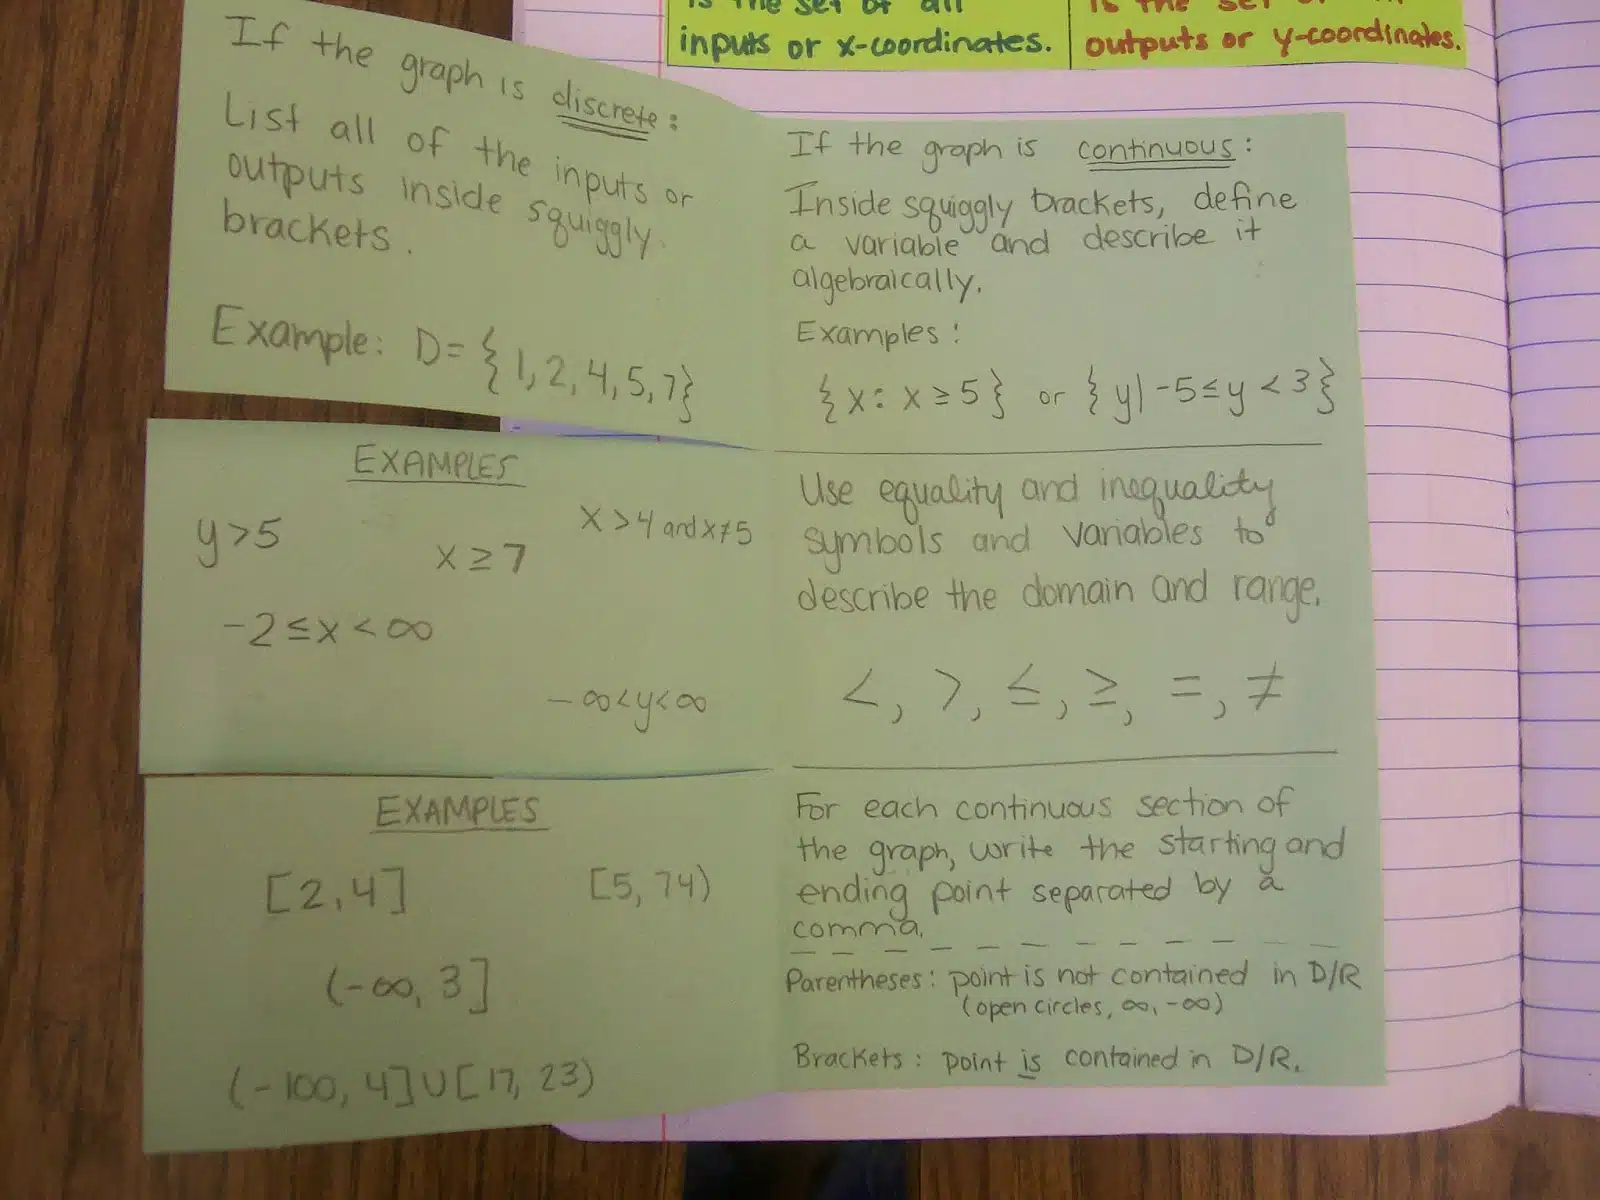 is the set of all
inputs or x-coordinates.
is the set
outputs or y-coordinates.
If the graph is discrete:
List all of the inputs or
outputs inside squiggly
brackets.
Example: D={1,2,4,5,7}
If the graph is continuous:
Inside squiggly brackets, define
a variable and describe it
algebraically.
Examples:
{x: x≥5} or {y|-5≤y<3}
EXAMPLES
y>5
x≥7
x>4 and x≠5
-2≤x<∞
-∞<y<∞
Use equality and inequality
symbols and variables to
describe the domain and range.
<, >, ≤, ≥, =, ≠
EXAMPLES
[2,4]
[5,74)
(-∞, 3]
(-100, 4]∪[17, 23)
For each continuous section of
the graph, write the starting and
ending point separated by a
comma.
Parentheses: point is not contained in D/R
(open circles, ∞, -∞)
Brackets: point is contained in D/R.